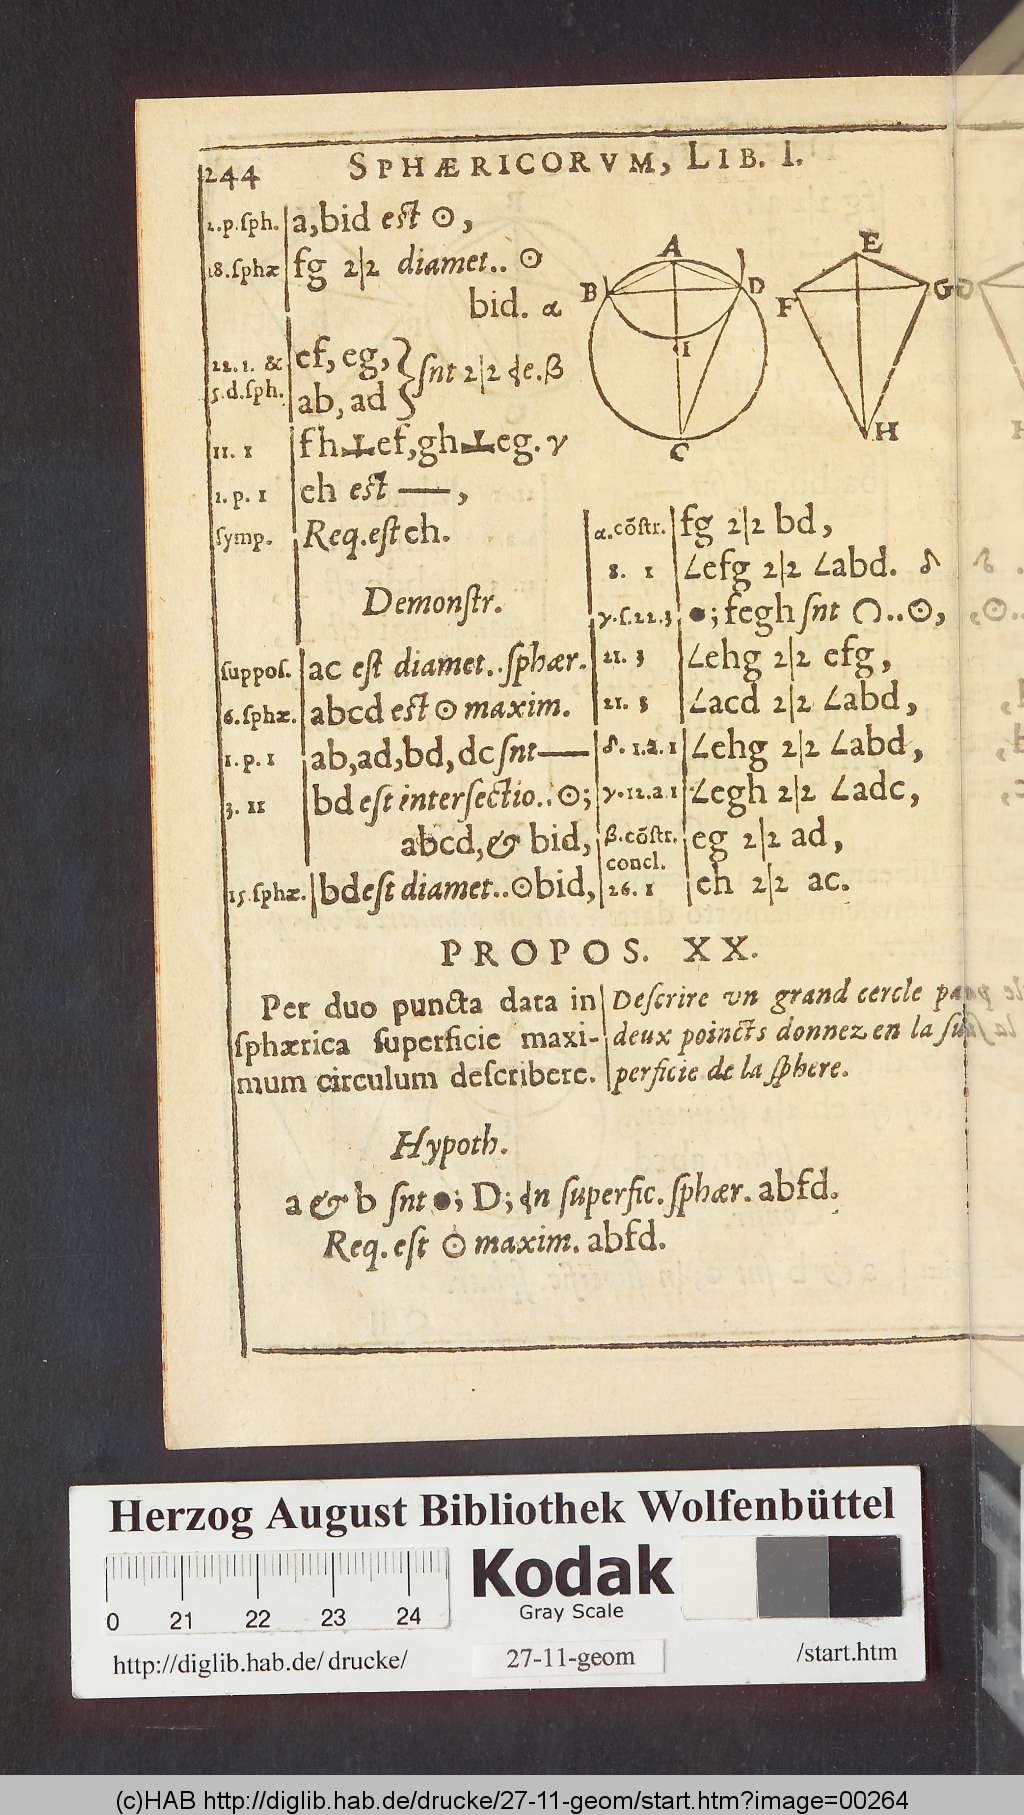 244 SPHÆRICORVM, LIB. I.
1.p.sph. a,bid est ⊙,
18.sphæ fg 2|2 diamet.. ⊙
bid. α
22.1. & ef, eg,
5.d.sph. ab, ad } snt 2|2 de.β
11. 1 fh⊥ef,gh⊥eg. γ
1.p. 1 eh est —,
symp. Req.est eh.
Demonstr.
suppos. ac est diamet..sphær.
6.sphæ. abcd est ⊙ maxim.
1.p.1 ab,ad,bd,dc snt—
3. 11 bd est intersectio..⊙;
abcd,& bid,
15.sphæ. bd est diamet..⊙bid,
A
B
D
I
C
E
F
G
H
α.cõstr. fg 2|2 bd,
8. 1 ∠efg 2|2 ∠abd. δ
γ.s.22.3 •; fegh snt ◠..⊙,
21. 3 ∠ehg 2|2 efg,
21. 3 ∠acd 2|2 ∠abd,
δ. 1.a.1 ∠ehg 2|2 ∠abd,
γ.12.a.1 ∠egh 2|2 ∠adc,
β.cõstr. eg 2|2 ad,
concl.
26. 1 eh 2|2 ac.
PROPOS. XX.
Per duo puncta data in
sphærica superficie maxi-
mum circulum describere.
Descrire vn grand cercle par
deux poincts donnez en la su-
perficie de la sphere.
Hypoth.
a & b snt •; D; dn superfic. sphær. abfd.
Req. est ⊙ maxim. abfd.
Herzog August Bibliothek Wolfenbüttel
0 21 22 23 24
Kodak
Gray Scale
http://diglib.hab.de/ drucke/ 27-11-geom /start.htm
(c)HAB http://diglib.hab.de/drucke/27-11-geom/start.htm?image=00264